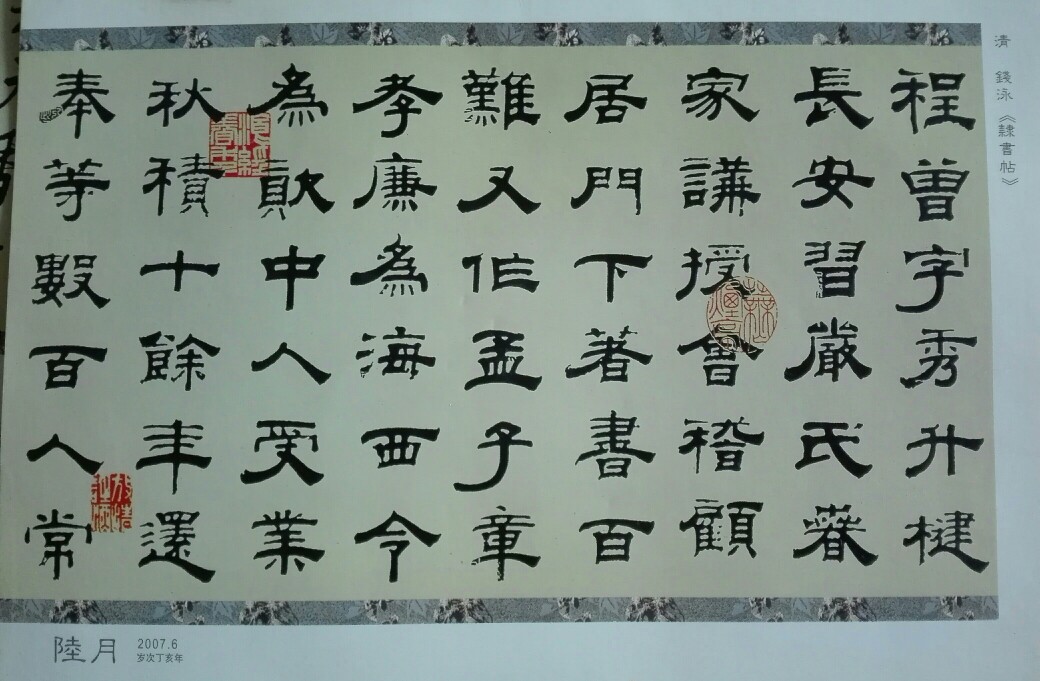 清 錢泳《隸書帖》
程曾字秀升楗
長安習嚴氏春
家講授會稽顧
居門下著書百
難又作孟子章
孝廉為海西令
為歐中人受業
秋積十餘年還
奉等數百人常
陸月
2007.6
岁次丁亥年